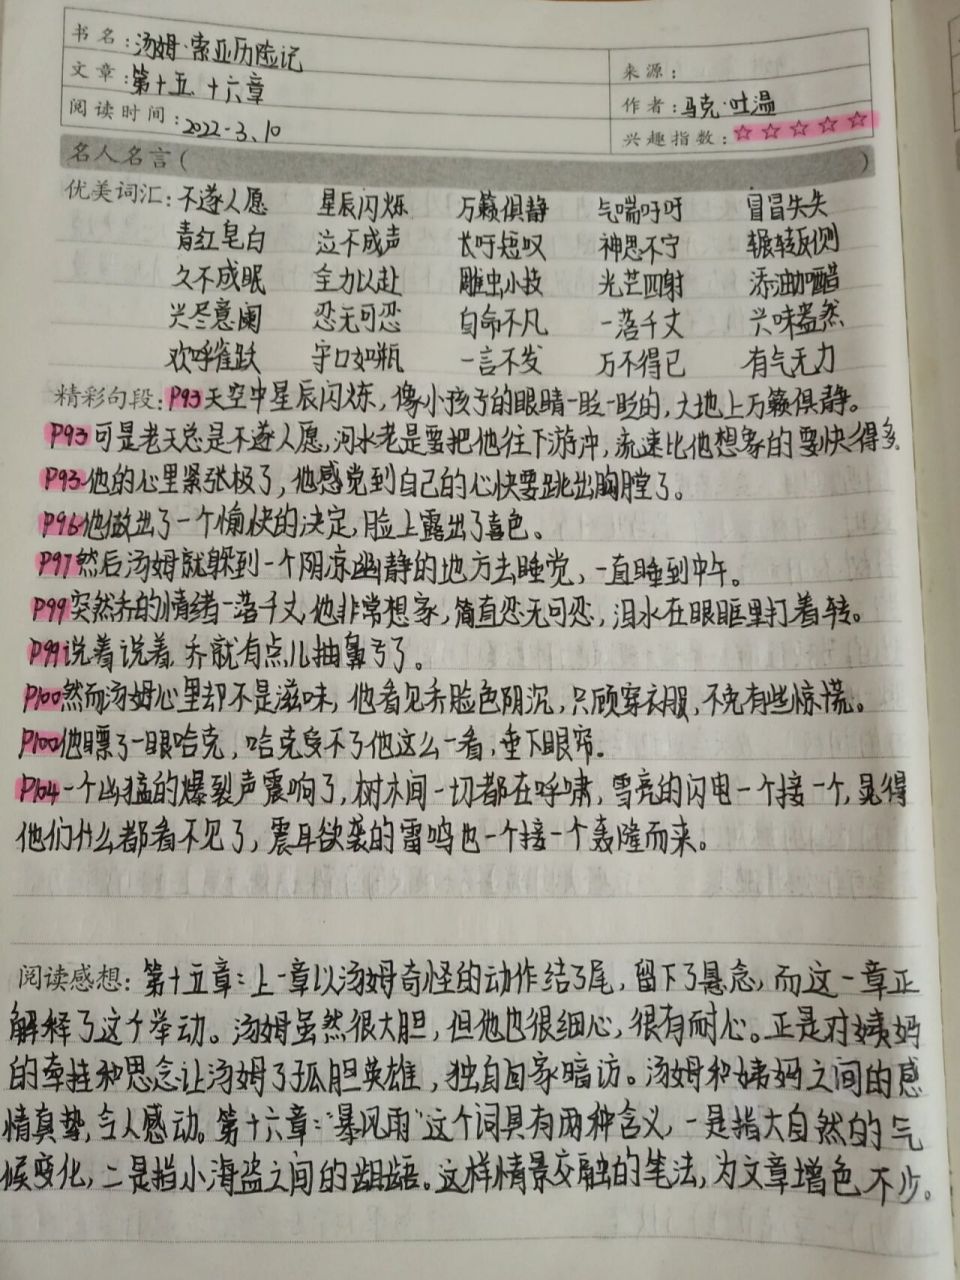 书名:汤姆·索亚历险记
文章:第十五、十六章
来源:
阅读时间:2022-3、10
作者:马克·吐温
兴趣指数:☆☆☆☆☆
名人名言( )
优美词汇:不遂人愿 星辰闪烁 万籁俱静 气喘吁吁 冒冒失失
青红皂白 泣不成声 长吁短叹 神思不宁 辗转反侧
久不成眠 全力以赴 雕虫小技 光芒四射 添油加醋
兴尽意阑 忍无可忍 自命不凡 一落千丈 兴味盎然
欢呼雀跃 守口如瓶 一言不发 万不得已 有气无力
精彩句段:P93天空中星辰闪烁,像小孩子的眼睛一眨一眨的,大地上万籁俱静。
P93可是老天总是不遂人愿,河水老是要把他往下游冲,流速比他想象的要快得多
P93他的心里紧张极了,他感觉到自己的心快要跳出胸膛了。
P96他做出了一个愉快的决定,脸上露出了喜色。
P97然后汤姆就躲到一个阴凉幽静的地方去睡觉,一直睡到中午。
P99突然乔的情绪一落千丈,他非常想家,简直忍无可忍,泪水在眼眶里打着转。
P99说着说着,乔就有点儿抽鼻子了。
P100然而汤姆心里却不是滋味,他看见乔脸色阴沉,只顾穿衣服,不免有些惊慌。
P100他瞟了一眼哈克,哈克受不了他这么一看,垂下眼帘。
P104一个凶猛的爆裂声震响了,树木间一切都在呼啸,雪亮的闪电一个接一个,晃得
他们什么都看不见了,震耳欲聋的雷鸣也一个接一个轰隆而来。
阅读感想:第十五章:上一章以汤姆奇怪的动作结了尾,留下了悬念,而这一章正
解释了这个举动。汤姆虽然很大胆,但他也很细心,很有耐心。正是对姨妈
的牵挂和思念让汤姆了孤胆英雄,独自回家暗访。汤姆和姨妈之间的感
情真挚,令人感动。第十六章:“暴风雨”这个词具有两种含义,一是指大自然的气
候变化,二是指小海盗之间的龃龉。这样情景交融的笔法,为文章增色不少。